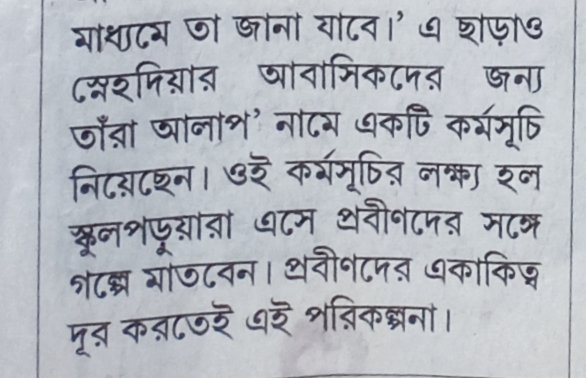 মাধ্যমে তা জানা যাবে।’ এ ছাড়াও
স্নেহদিয়ার আবাসিকদের জন্য
তাঁরা আলাপ’ নামে একটি কর্মসূচি
নিয়েছেন। ওই কর্মসূচির লক্ষ্য হল
স্কুলপড়ুয়ারা এসে প্রবীণদের সঙ্গে
গল্পে মাতবেন। প্রবীণদের একাকিত্ব
দূর করতেই এই পরিকল্পনা।